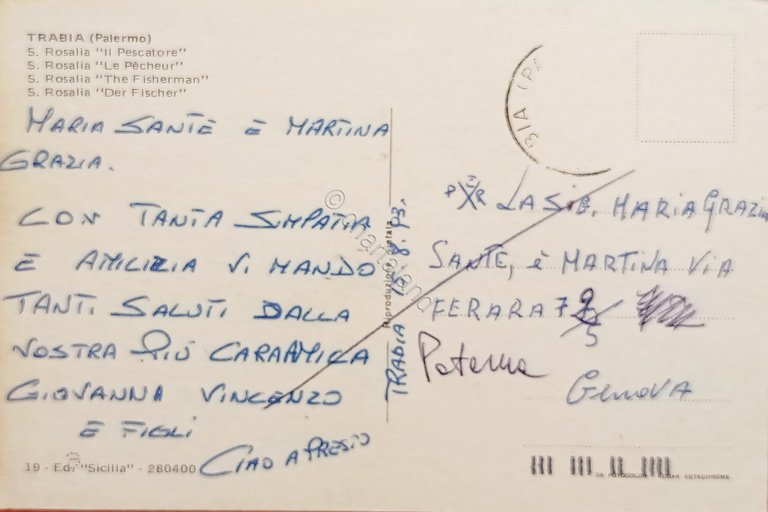 TRABIA (Palermo)
S. Rosalia "Il Pescatore"
S. Rosalia "Le Pêcheur"
S. Rosalia "The Fisherman"
S. Rosalia "Der Fischer"
MARIA SANTE E MARTINA
GRAZIA.
CON TANTA SIMPATIA
E AMILIZIA VI MANDO
TANTI SALUTI DALLA
VOSTRA PIÙ CARA AMICA
GIOVANNA VINCENZO
E FIGLI
CIAO A PRESTO
19 - Ed. "Sicilia" - 280400
Riproduzione vietata
TRABIA 8.93.
BIA (PA
LA SIG. MARIA GRAZIA
SANTE, è MARTINA VIA
FERARA 7
Paterna
GENOVA
KODAK EKTACHROME
© Martolano